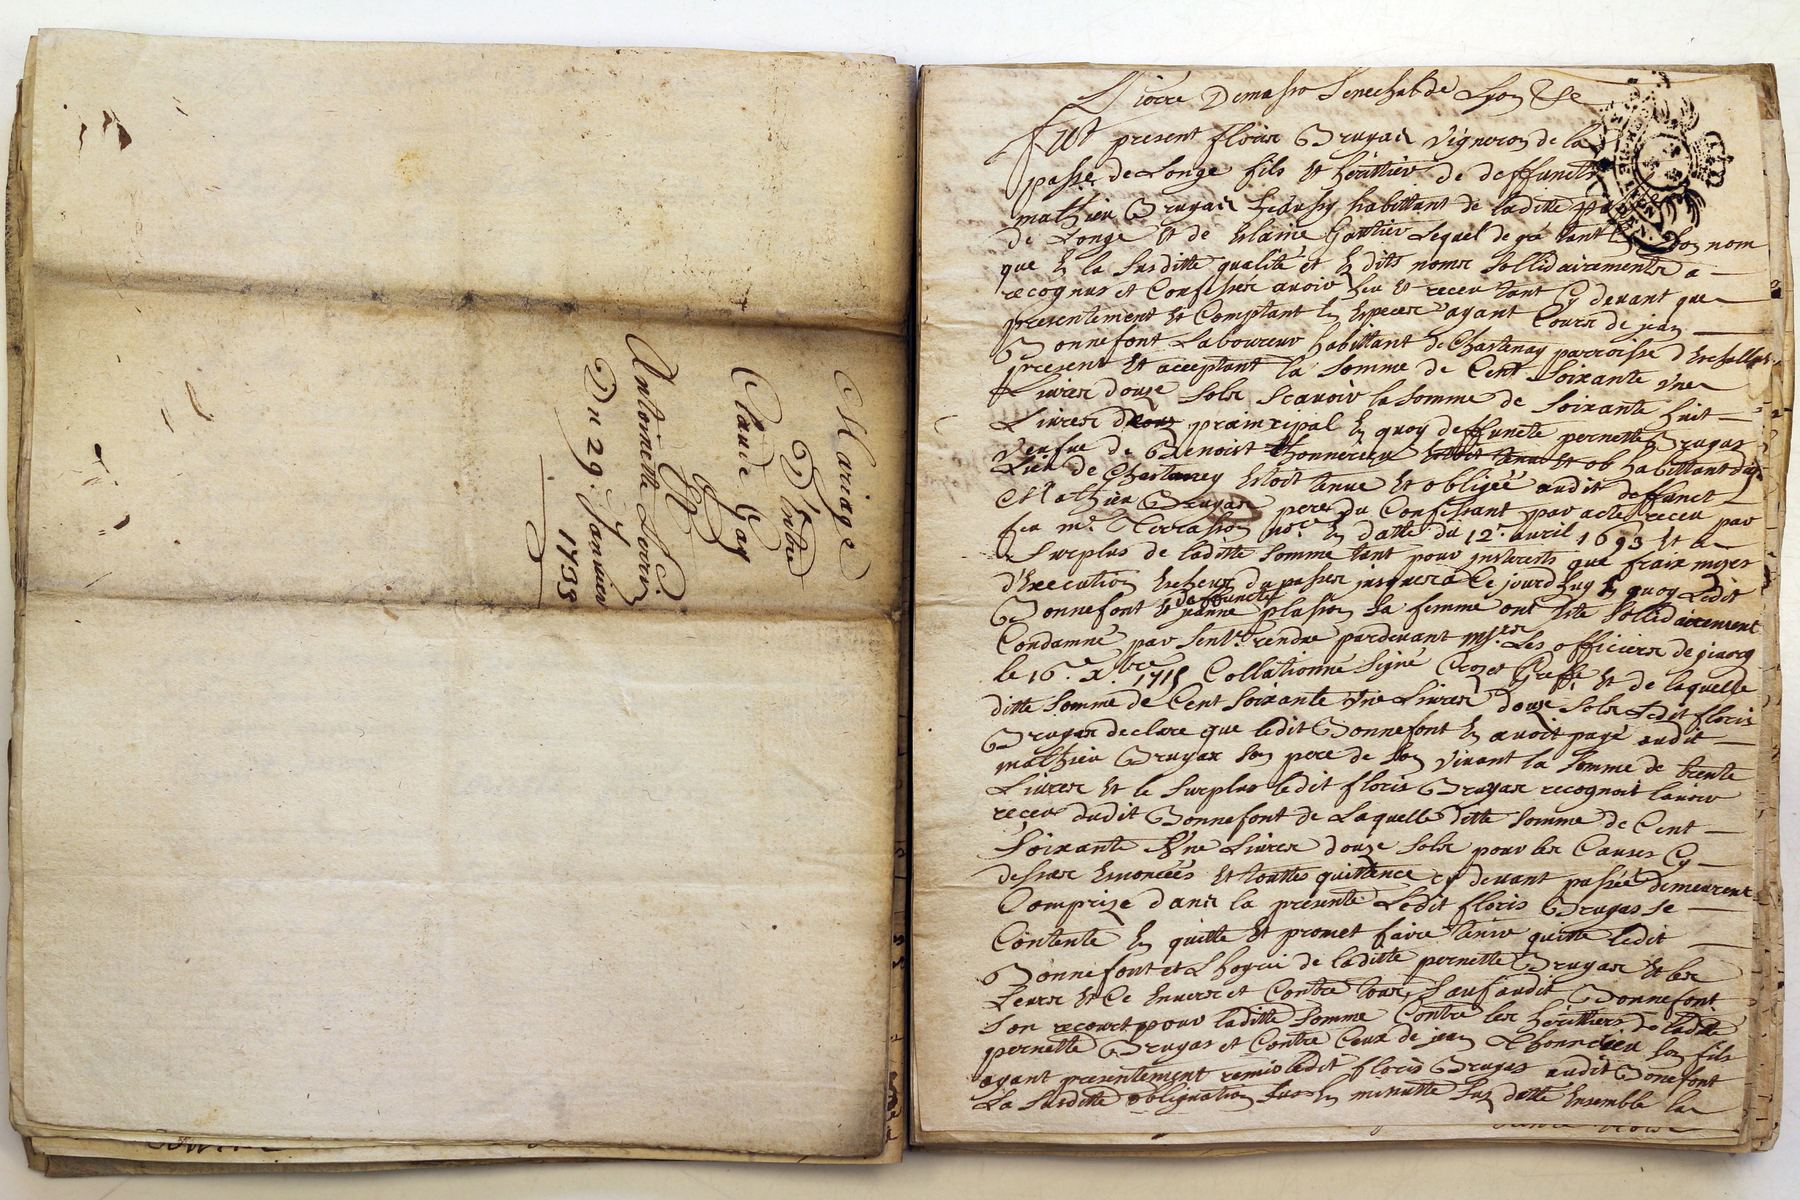 Mariage
D'entre
Claude Gay
Et
Antoinette Perrin
Du 29. Janvier
1738
Pierre Demasso Senechal de Lyon
Fut present floris Brugas Vigneron de la
passe de Longe fils et herittier de deffuncts
mathieu Brugas habittant de laditte
de Longe et de Gautier Lequel de gré tant son nom
que en la susditte qualité et en dits noms sollidairements a
recognus et Confesser avoir heu et receu tant Cy devant que
presentement et Comptant en especes ayant Cours de jean
Bonnefont Laboureur habittant de Chastenay parroisse d'
present et acceptant la somme de Cent soixante Une
Livres douze sols scavoir la somme de soixante huit
Livres de principal en quoy deffuncte pernette Brugas
Vefve de Benoist Thonnerieu habittant
Lieu de Chastenay estoit tenue et obligéé audit deffunct
Mathieu Brugas pere du Confessant par acte receu par
feu me. Terrasson nore. en datte du 12e. avril 1693 et le
surplus de laditte somme tant pour interests que fraix mises
d'execution du passer jusques a Ce jourdhuy en quoy Ledit
Bonnefont et deffuncte jeanne plasson sa femme ont esté sollidairement
Condamné par sentce. rendue pardevant Mrs. Les officiers de
le 16e. Xbre. 1715 Collationné signé Greffe. et de laquelle
ditte somme de Cent soixante Une Livres douze sols Ledit floris
Brugas declare que ledit Bonnefont en avoit payé audit
mathieu Brugas son pere de son vivant la somme de trente
Livres et le surplus ledit floris Brugas recognoit lavoir
receu dudit Bonnefont de Laquelle ditte somme de Cent
soixante Une Livres douze sols pour les Causes Cy
dessus enoncéés et touttes quittance cy devant passéé demeurent
Comprize dans la presente Ledit floris Brugas se
Contente en quitte et promet faire tenir quitte ledit
Bonnefont et L'hoyrie de laditte pernette Brugas et les
Leurs et Ce envers et Contre tous, sauf audit Bonnefont
son recourt pour laditte somme Contre les heritiers de laditte
pernette Brugas et Contre Ceux de jean Thonnerieu son fils
ayant presentement remis ledit floris Brugas audit Bonefont
La susditte obligation en minutte sus datte Ensemble la